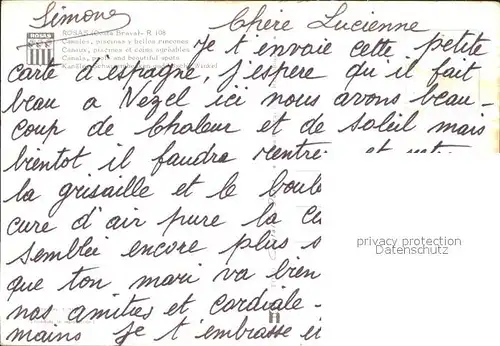 Simone
Chère Lucienne
ROSAS (Costa Brava) - R 108
Canales, piscinas y bellos rincones
Canaux, piscines et coins agréables
Canals, pools and beautiful spots
Je t envoie cette petite
carte d'espagne, j'espere qu il fait
beau a Nezel ici nous avons beau-
coup de Chaleur et de soleil mais
bientot il faudra rentrer et
la grisaille et le
cure d'air pure la
semblei encore plus
que ton mari va bien
nos amities et cordiale
mains Je t'embrasse
privacy protection
Datenschutz